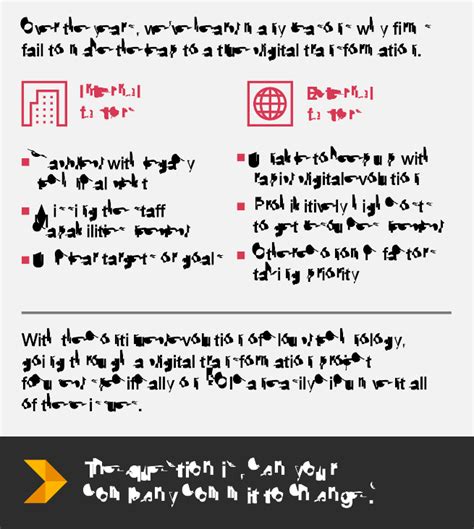 Over the years, we've learnt many reasons why firms
fail to make the leap to a true digital transformation.
Internal
factors
External
factors
with legacy
technical debt
Missing the staff
capabilities needed
Unclear targets or goals
Unable to keep up with
rapid digital evolution
Prohibitively high costs
to get resources needed
Other economic factors
taking priority
With the continued evolution of cloud technology,
going through a digital transformation project
focused specifically on can easily circumvent all
of these issues.
The question is, can your
company commit to change?